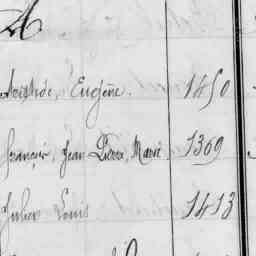 A
Aristide, Eugène. 1450
François, Jean Pierre, Marie 1369
Julien Louis 1413